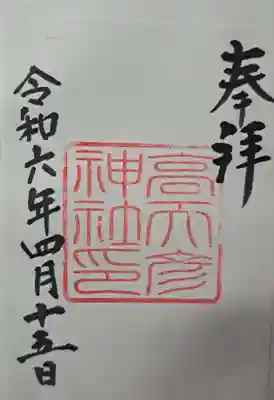 奉拝
高六彦
神社印
令和六年四月十五日